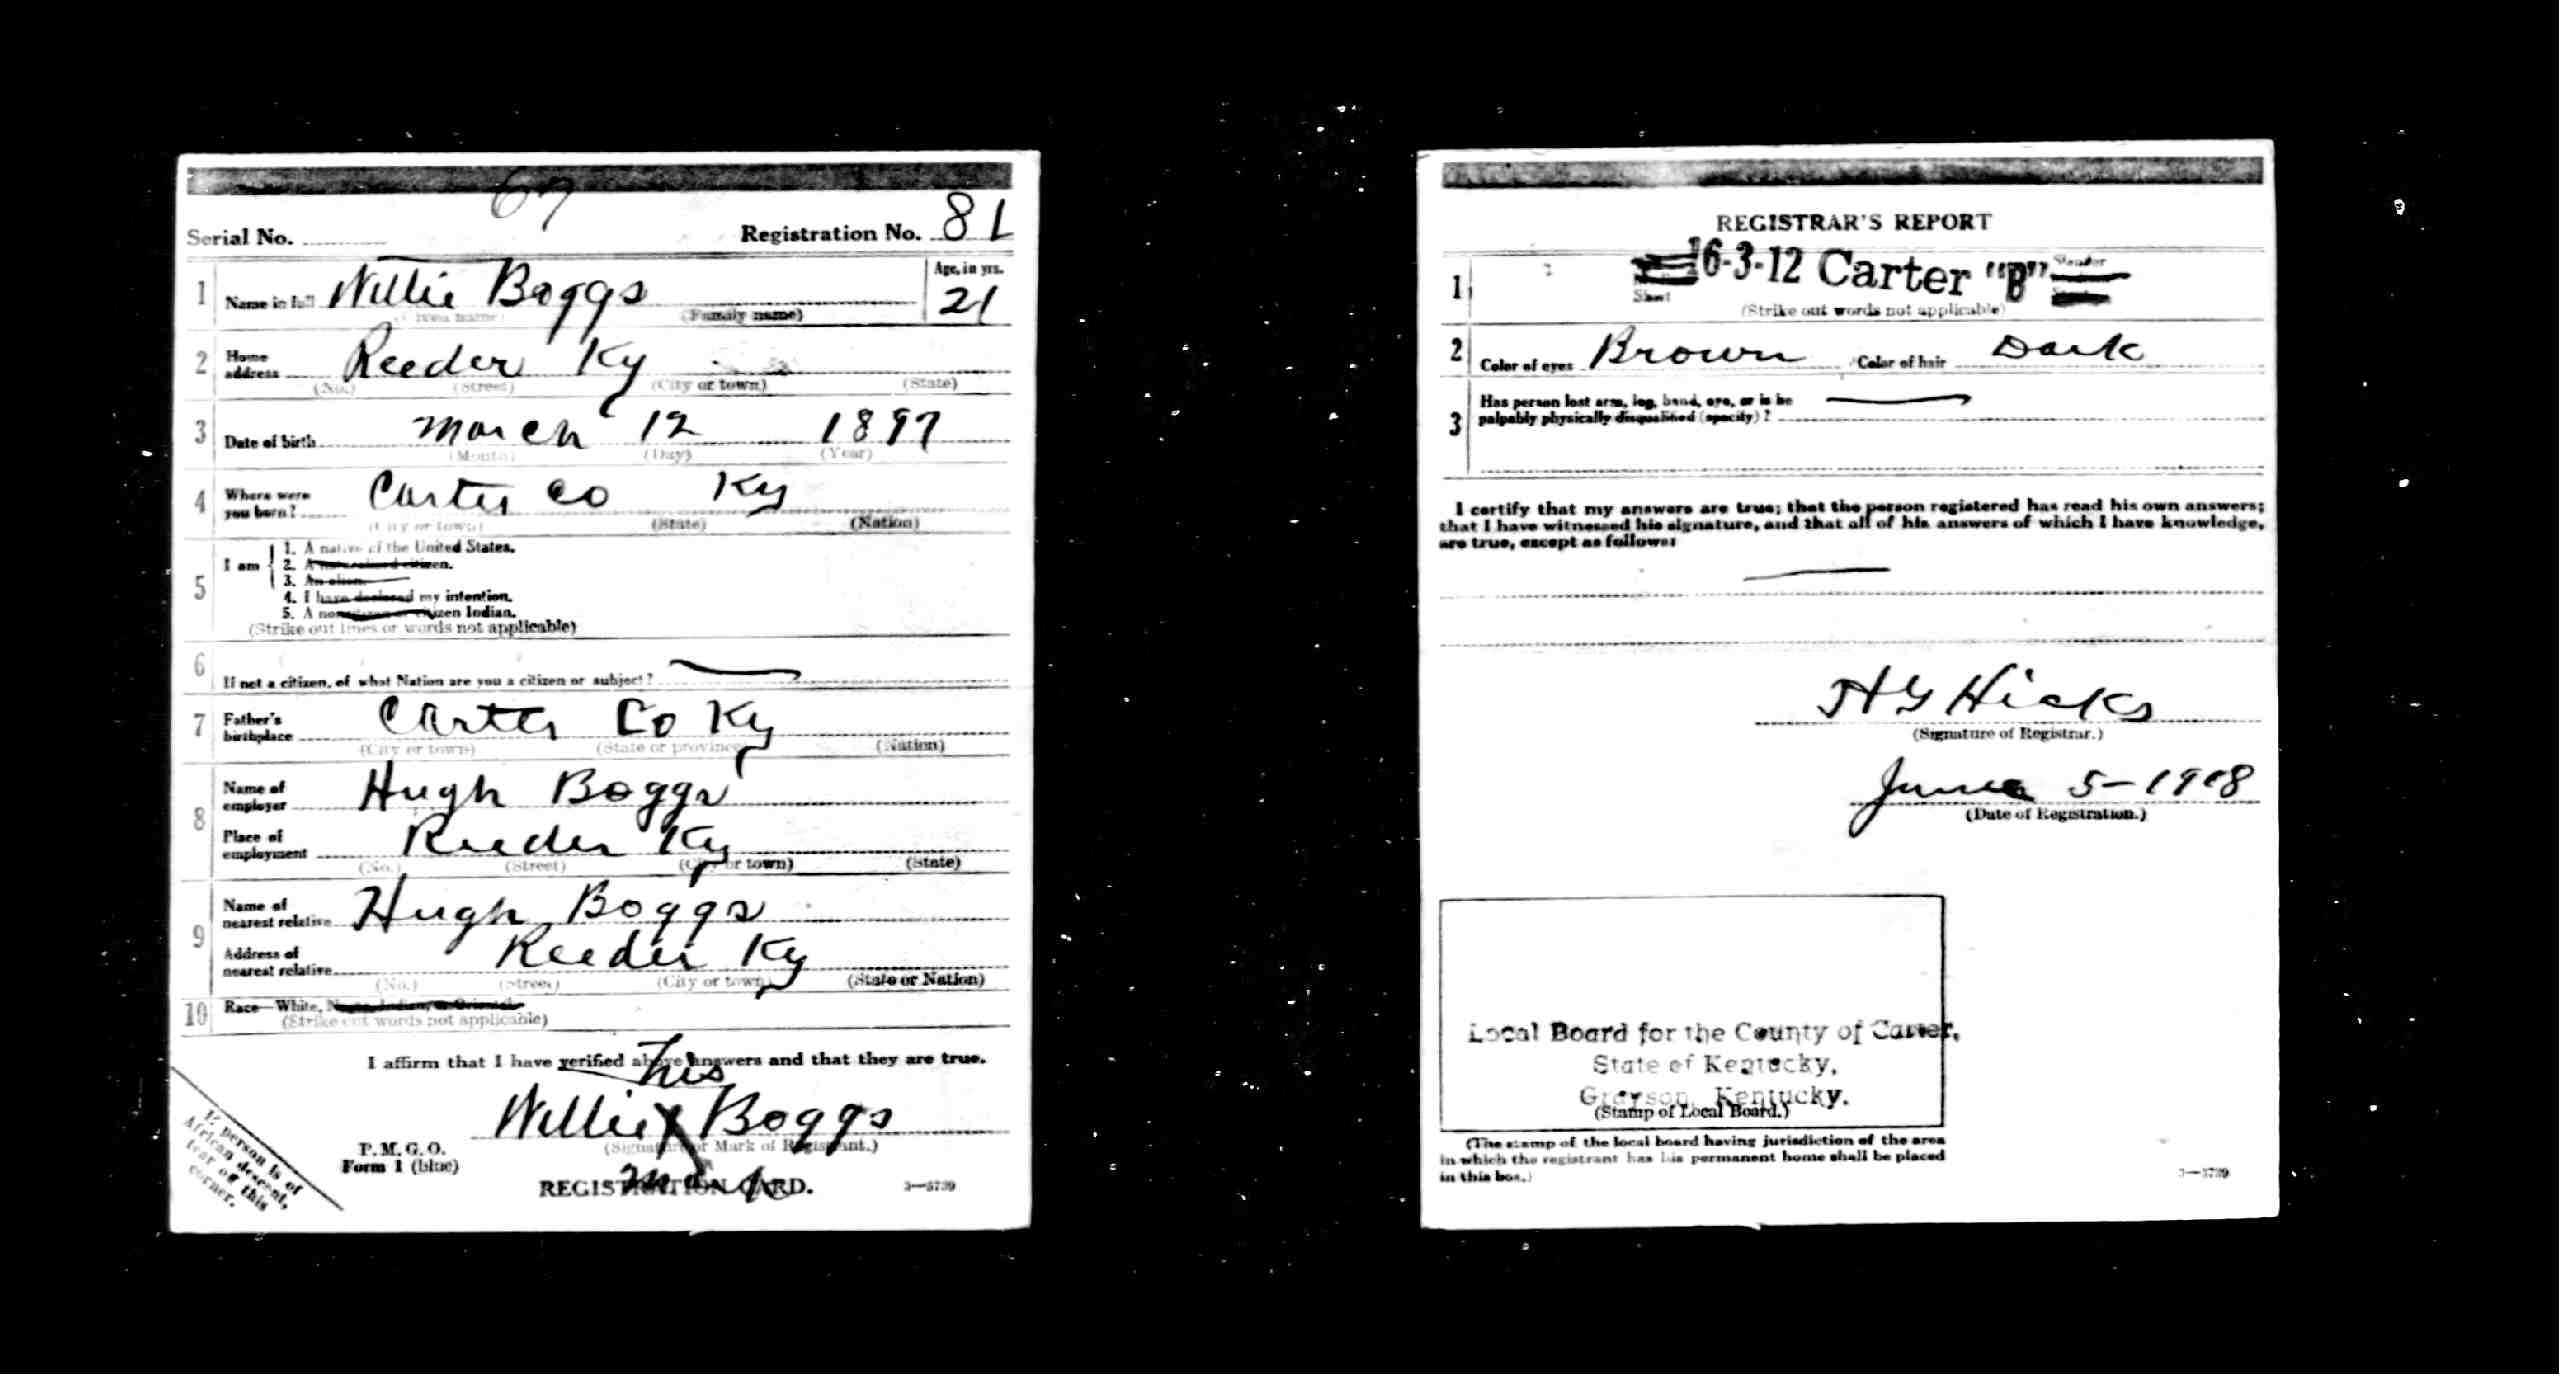 67
Serial No. Registration No. 81
1 Name in full Willie Boggs Age, in yrs. 21
(Given name) (Family name)
2 Home address Reeder Ky
(No.) (Street) (City or town) (State)
3 Date of birth March 12 1897
(Month) (Day) (Year)
4 Where were you born? Carter Co Ky
(City or town) (State) (Nation)
5 I am
1. A native of the United States.
2. A naturalized citizen.
3. An alien.
4. I have declared my intention.
5. A noncitizen or citizen Indian.
(Strike out lines or words not applicable)
6 If not a citizen, of what Nation are you a citizen or subject?
7 Father's birthplace Carter Co Ky
(City or town) (State or province) (Nation)
8 Name of employer Hugh Boggs
Place of employment Reeder Ky
(No.) (Street) (City or town) (State)
9 Name of nearest relative Hugh Boggs
Address of nearest relative Reeder Ky
(No.) (Street) (City or town) (State or Nation)
10 Race—White, Negro, Indian, or Oriental
(Strike out words not applicable)
I affirm that I have verified above answers and that they are true.
his
Willie X Boggs
(Signature or Mark of Registrant.)
mark
P. M. G. O.
Form 1 (blue)
REGISTRATION CARD.
3—5739
If person is of
African descent,
tear off this
corner.
REGISTRAR'S REPORT
1 16-3-12 Carter "B" Slender
Short
(Strike out words not applicable)
2 Color of eyes Brown Color of hair Dark
3 Has person lost arm, leg, hand, eye, or is he
palpably physically disqualified (specify)?
I certify that my answers are true; that the person registered has read his own answers;
that I have witnessed his signature, and that all of his answers of which I have knowledge,
are true, except as follows:
H G Hicks
(Signature of Registrar.)
June 5-1918
(Date of Registration.)
Local Board for the County of Carter,
State of Kentucky,
Grayson, Kentucky.
(Stamp of Local Board.)
(The stamp of the local board having jurisdiction of the area
in which the registrant has his permanent home shall be placed
in this box.)
3—5739